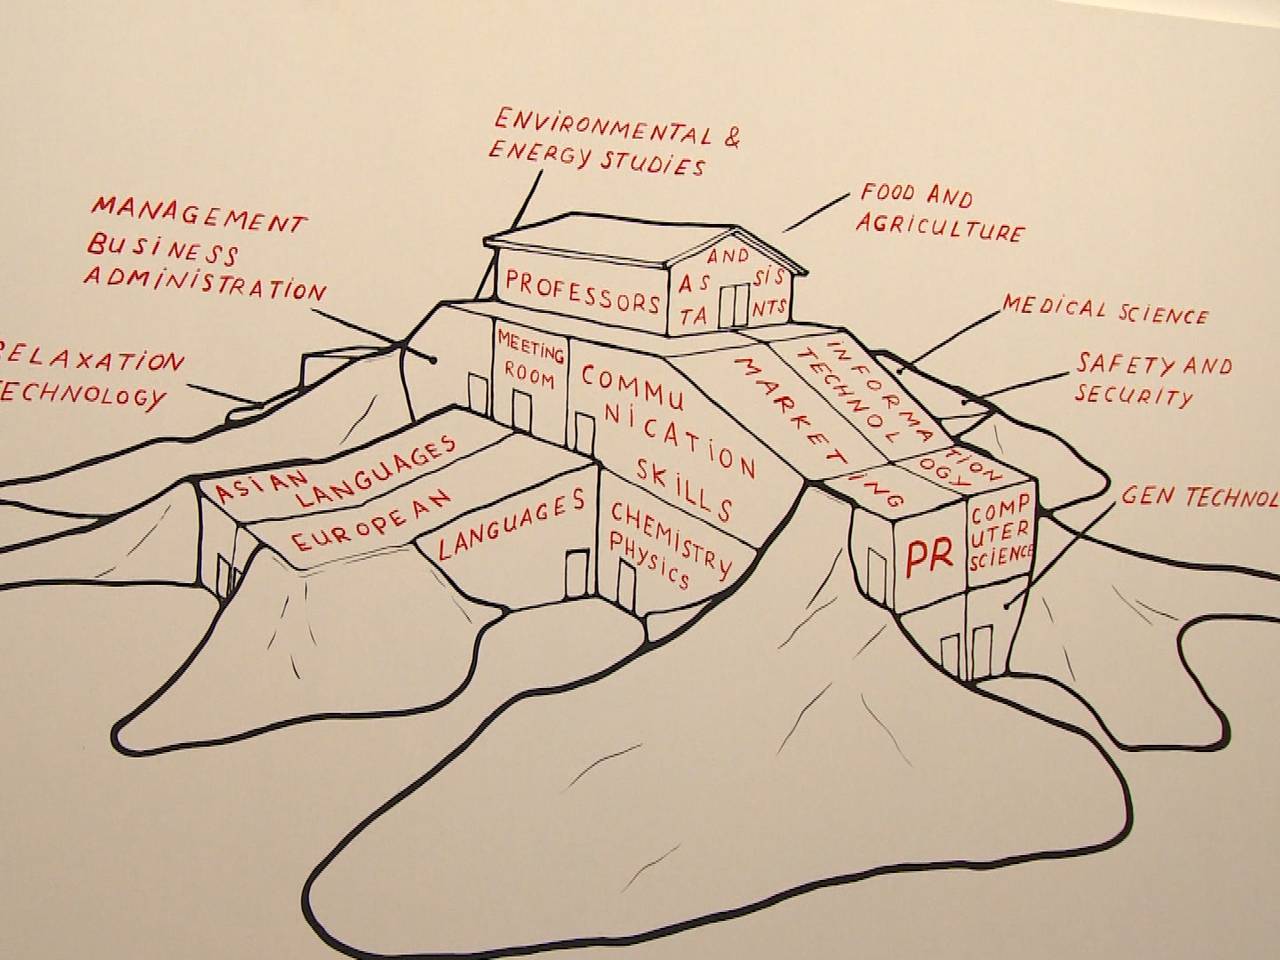 ENVIRONMENTAL &
ENERGY STUDIES
FOOD AND
AGRICULTURE
MANAGEMENT
BUSINESS
ADMINISTRATION
MEDICAL SCIENCE
SAFETY AND
SECURITY
RELAXATION
TECHNOLOGY
GEN TECHNOL
PROFESSORS
AND
AS SIS
TA NTS
MEETING
ROOM
COMMU
NICATION
SKILLS
MARKETING
INFORMATION
TECHNOLOGY
ASIAN
LANGUAGES
EUROPEAN
LANGUAGES
CHEMISTRY
PHYSICS
PR
COMP
UTER
SCIENCE